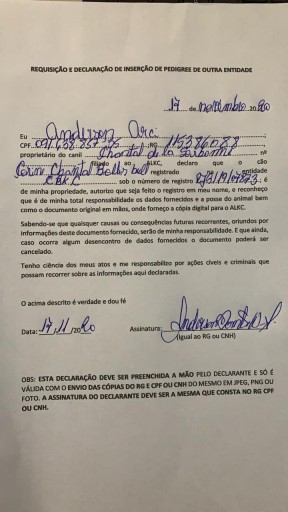 REQUISIÇÃO E DECLARAÇÃO DE INSERÇÃO DE PEDIGREE DE OUTRA ENTIDADE
17 de novembro 2020
Eu Anderson
CPF. RG.
proprietário do canil Chantal de la nº
filiado ao ALKC, declaro que o cão
registrado entidade
sob o número de registro é
de minha propriedade, autorizo que seja feito o registro em meu nome, e reconheço
que é de minha total responsabilidade os dados fornecidos e a posse do animal bem
como o documento original em mãos, onde forneço a cópia digital para o ALKC.
Sabendo-se que quaisquer causas ou consequências futuras recorrentes, oriundos por
informações deste documento fornecido, serão de minha responsabilidade. E que ainda,
caso ocorra algum desencontro de dados fornecidos o documento poderá ser
cancelado.
Tenho ciência dos meus atos e me responsabilizo por ações civeis e criminais que
possam recorrer sobre as informações aqui declaradas.
O acima descrito é verdade e dou fé
Data: 17/11/2020 Assinatura:
(igual ao RG ou CNH)
OBS: ESTA DECLARAÇÃO DEVE SER PREENCHIDA A MÃO PELO DECLARANTE E SÓ É
VÁLIDA COM O ENVIO DAS CÓPIAS DO RG E CPF OU CNH DO MESMO EM JPEG, PNG OU
FOTO. A ASSINATURA DO DECLARANTE DEVE SER A MESMA QUE CONSTA NO RG CPF
OU CNH.